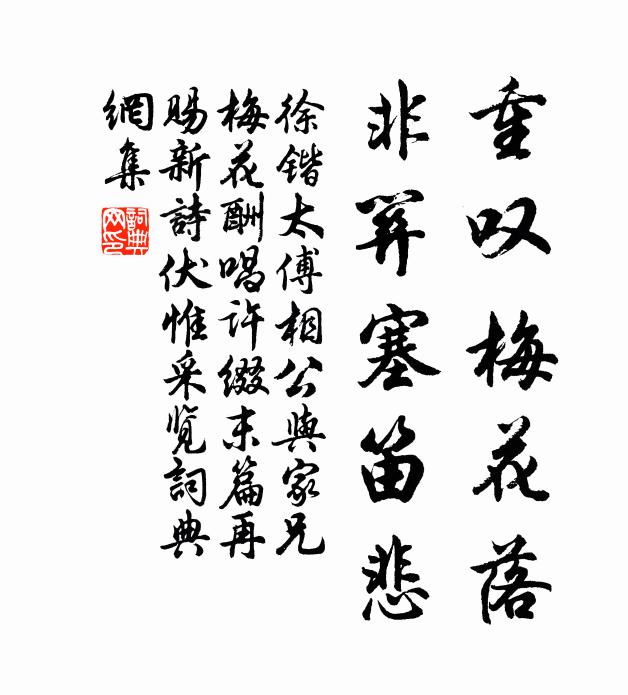 重叹梅花落
非关塞笛悲
徐锴太傅相公與家兄
梅花酬唱许缀末篇再
賜新詩伏惟采览詞典
網集
詞典
网印